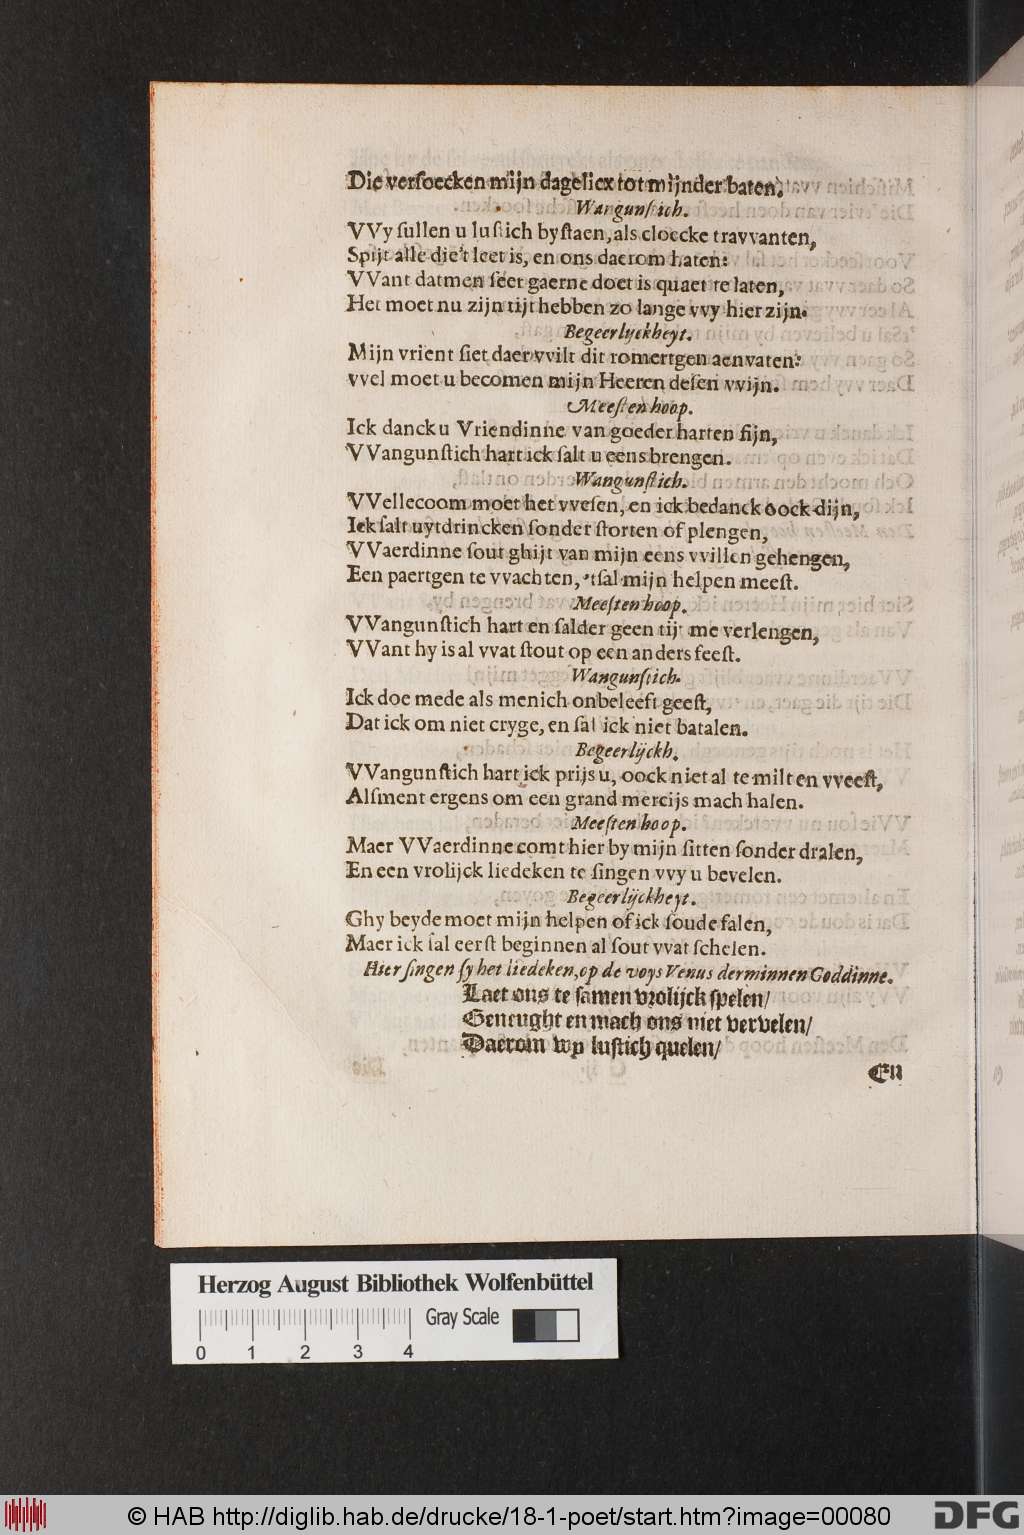 Die versoecken mijn dageliex tot mijnder baten.
Wangunstich.
VVy sullen u lustich bystaen, als cloecke travvanten,
Spijt alle die't leet is, en ons daerom haten:
VVant datmen seer gaerne doet is quaet te laten,
Het moet nu zijn tijt hebben zo lange vvy hier zijn.
Begeerlyckheyt.
Mijn vrient siet daer vvilt dit romertgen aenvaten:
vvel moet u becomen mijn Heeren desen vvijn.
Meesten hoop.
Ick danck u Vriendinne van goeder harten fijn,
VVangunstich hart ick salt u eens brengen.
Wangunstich.
VVellecoom moet het vvesen, en ick bedanck oock dijn,
Ick salt uytdrincken sonder storten of plengen,
VVaerdinne sout ghijt van mijn eens vvillen gehengen,
Een paertgen te vvachten, 'tsal mijn helpen meest.
Meesten hoop.
VVangunstich hart en salder geen tijt me verlengen,
VVant hy is al vvat stout op een anders feest.
Wangunstich.
Ick doe mede als menich onbeleeft geest,
Dat ick om niet cryge, en sal ick niet batalen.
Begeerlijckh.
VVangunstich hart ick prijs u, oock niet al te milt en vveest,
Alsment ergens om een grand mercijs mach halen.
Meesten hoop.
Maer VVaerdinne comt hier by mijn sitten sonder dralen,
En een vrolijck liedeken te singen vvy u bevelen.
Begeerlijckheyt.
Ghy beyde moet mijn helpen of ick soude falen,
Maer ick sal eerst beginnen al sout vvat schelen.
Hier singen sy het liedeken, op de voys Venus der minnen Goddinne.
Laet ons te samen vrolijck spelen/
Geneught en mach ons niet vervelen/
Daerom wy lustich quelen/
En
Herzog August Bibliothek Wolfenbüttel
Gray Scale
0 1 2 3 4
© HAB http://diglib.hab.de/drucke/18-1-poet/start.htm?image=00080
DFG